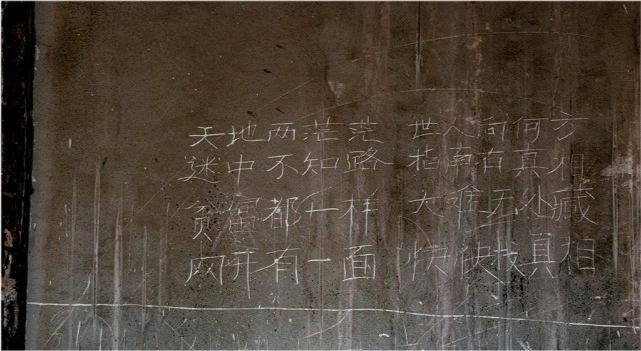 天地两茫茫 世人向何方
迷中不知路 指南有真相
贫富都一样 大难无处藏
网开有一面 快快找真相